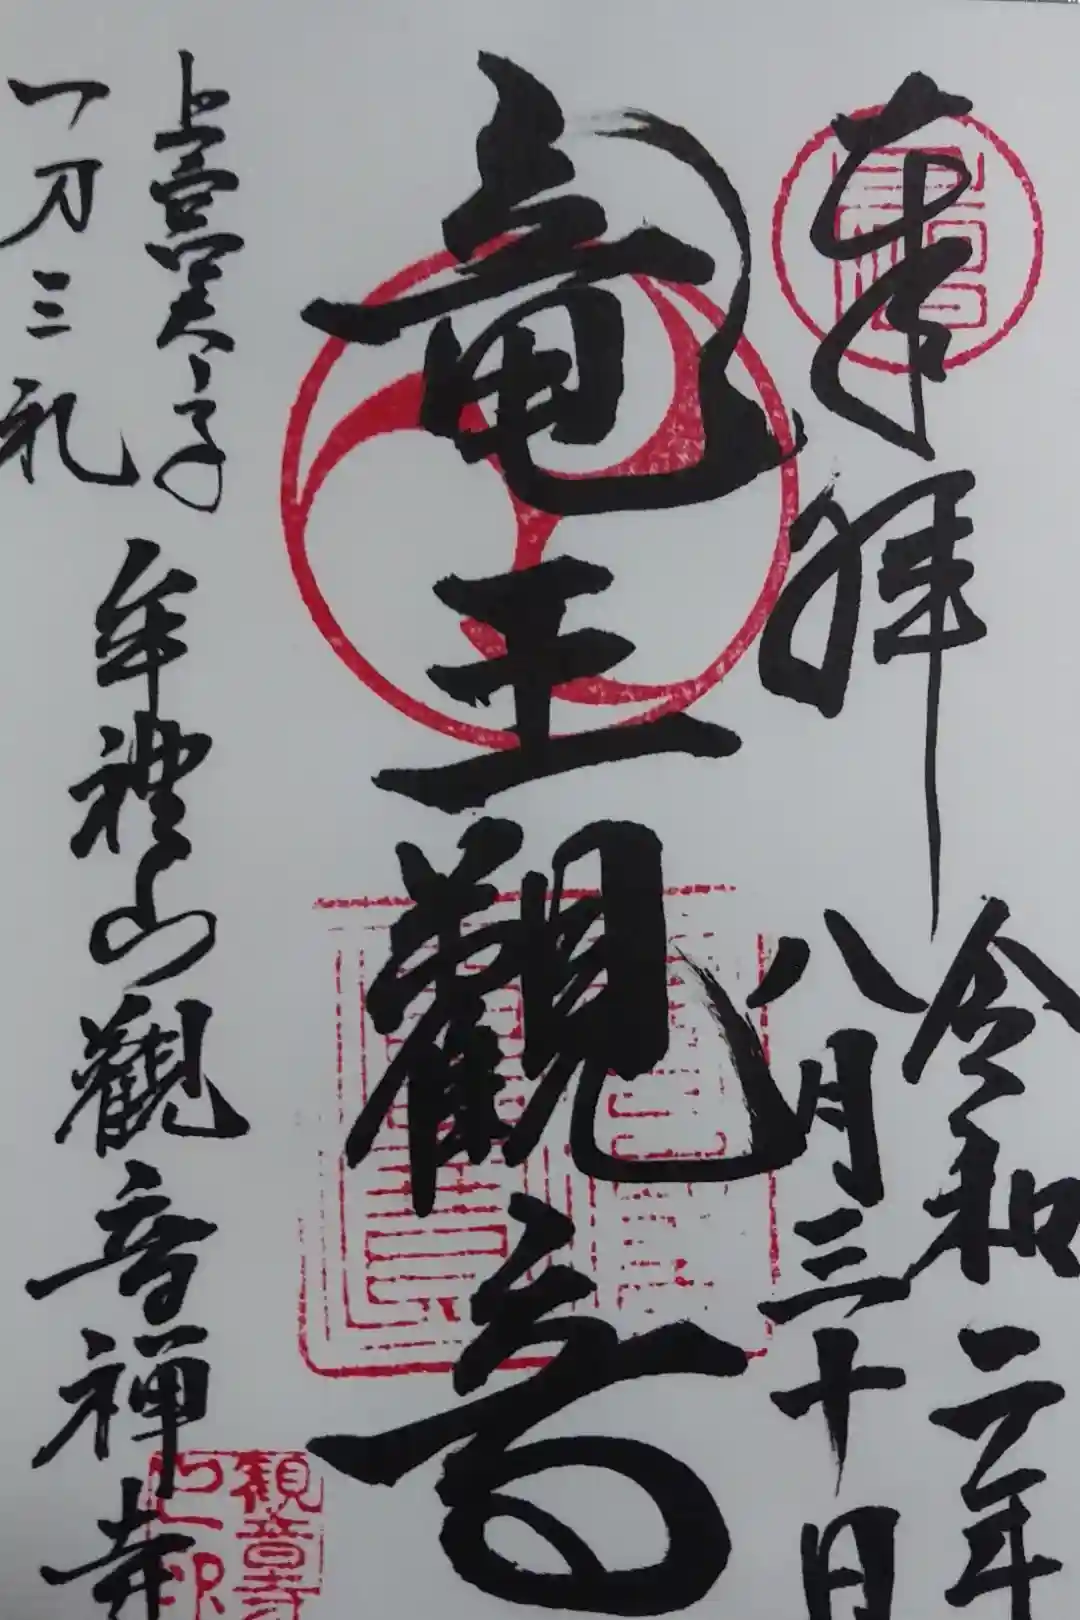 奉拝
令和二年
八月三十日
竜王觀音
上宮太子
一刀三礼
牟禮山觀音禅寺
観音寺